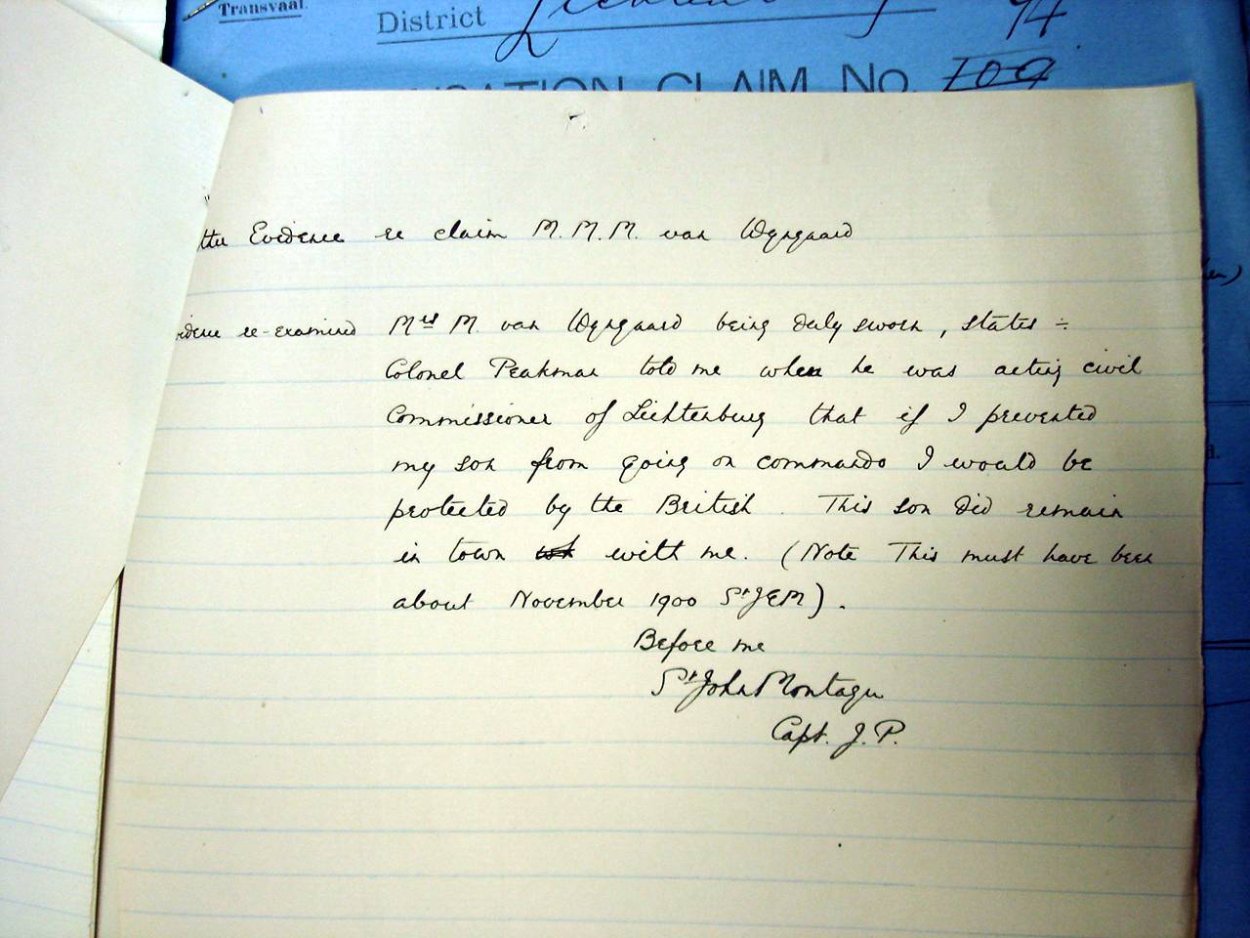 Transvaal.
District
CLAIM No. 709
Evidence re claim M. M. M. van Wyngaard
re-examined Mrs M. van Wyngaard being duly sworn, states ÷
Colonel Peakman told me when he was acting civil
Commissioner of Lichtenburg that if I prevented
my son from going on commando I would be
protected by the British. This son did remain
in town with me. (Note This must have been
about November 1900 StJEM).
Before me
St John Montagu
Capt. J. P.